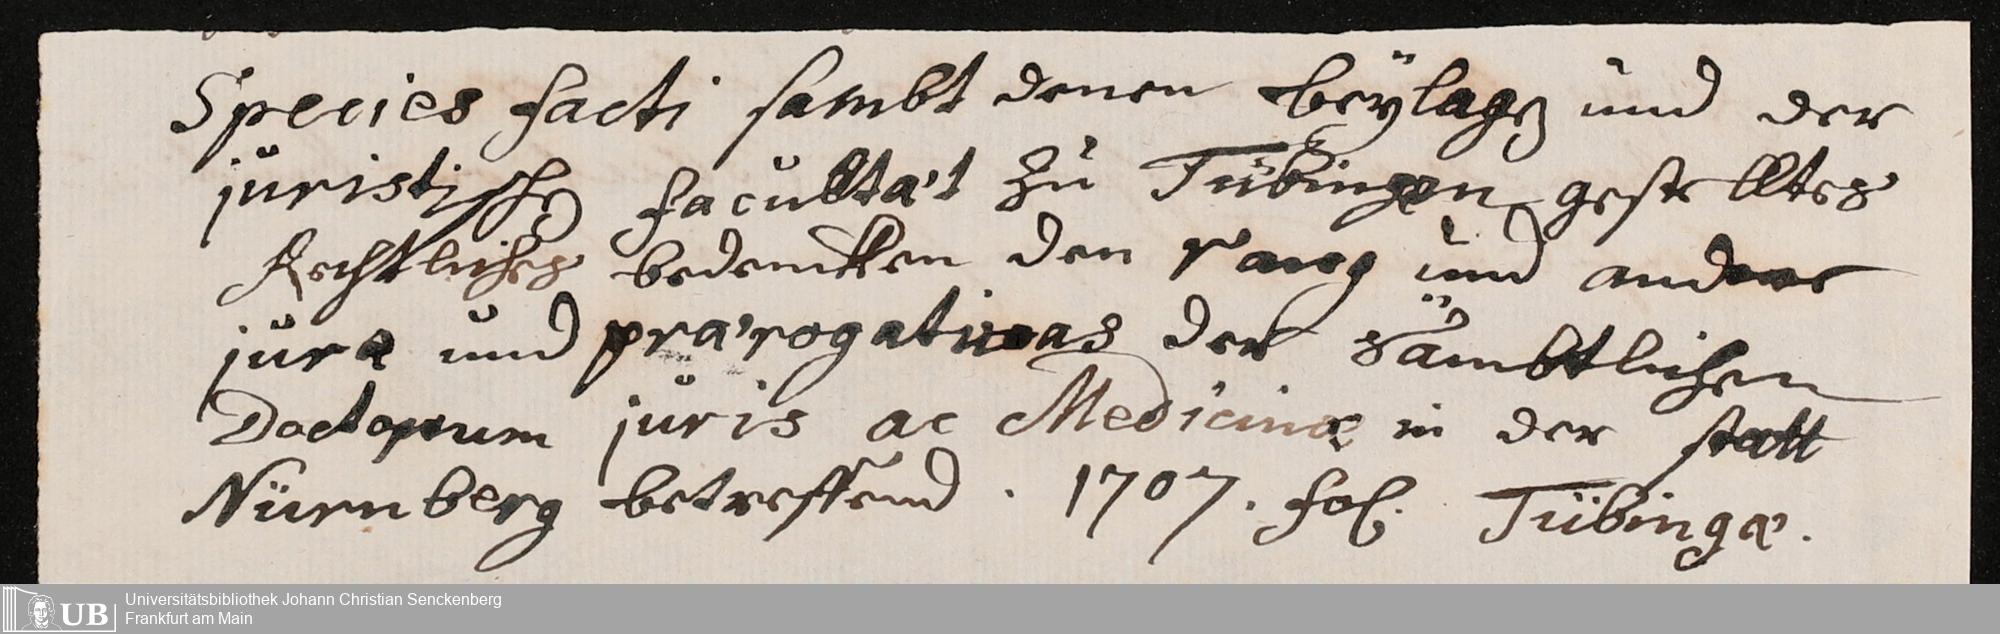 Species facti sambt denen beÿlagen und der
juristischen facultæt zu Tübingen gestelltes
Rechtliches bedencken den rang und andere
jura und prærogativas der sämbtlichen
Doctorum juris ac Medicinæ in der statt
Nürnberg betreffend. 1707. fol. Tübingæ.
UB
Universitätsbibliothek Johann Christian Senckenberg
Frankfurt am Main